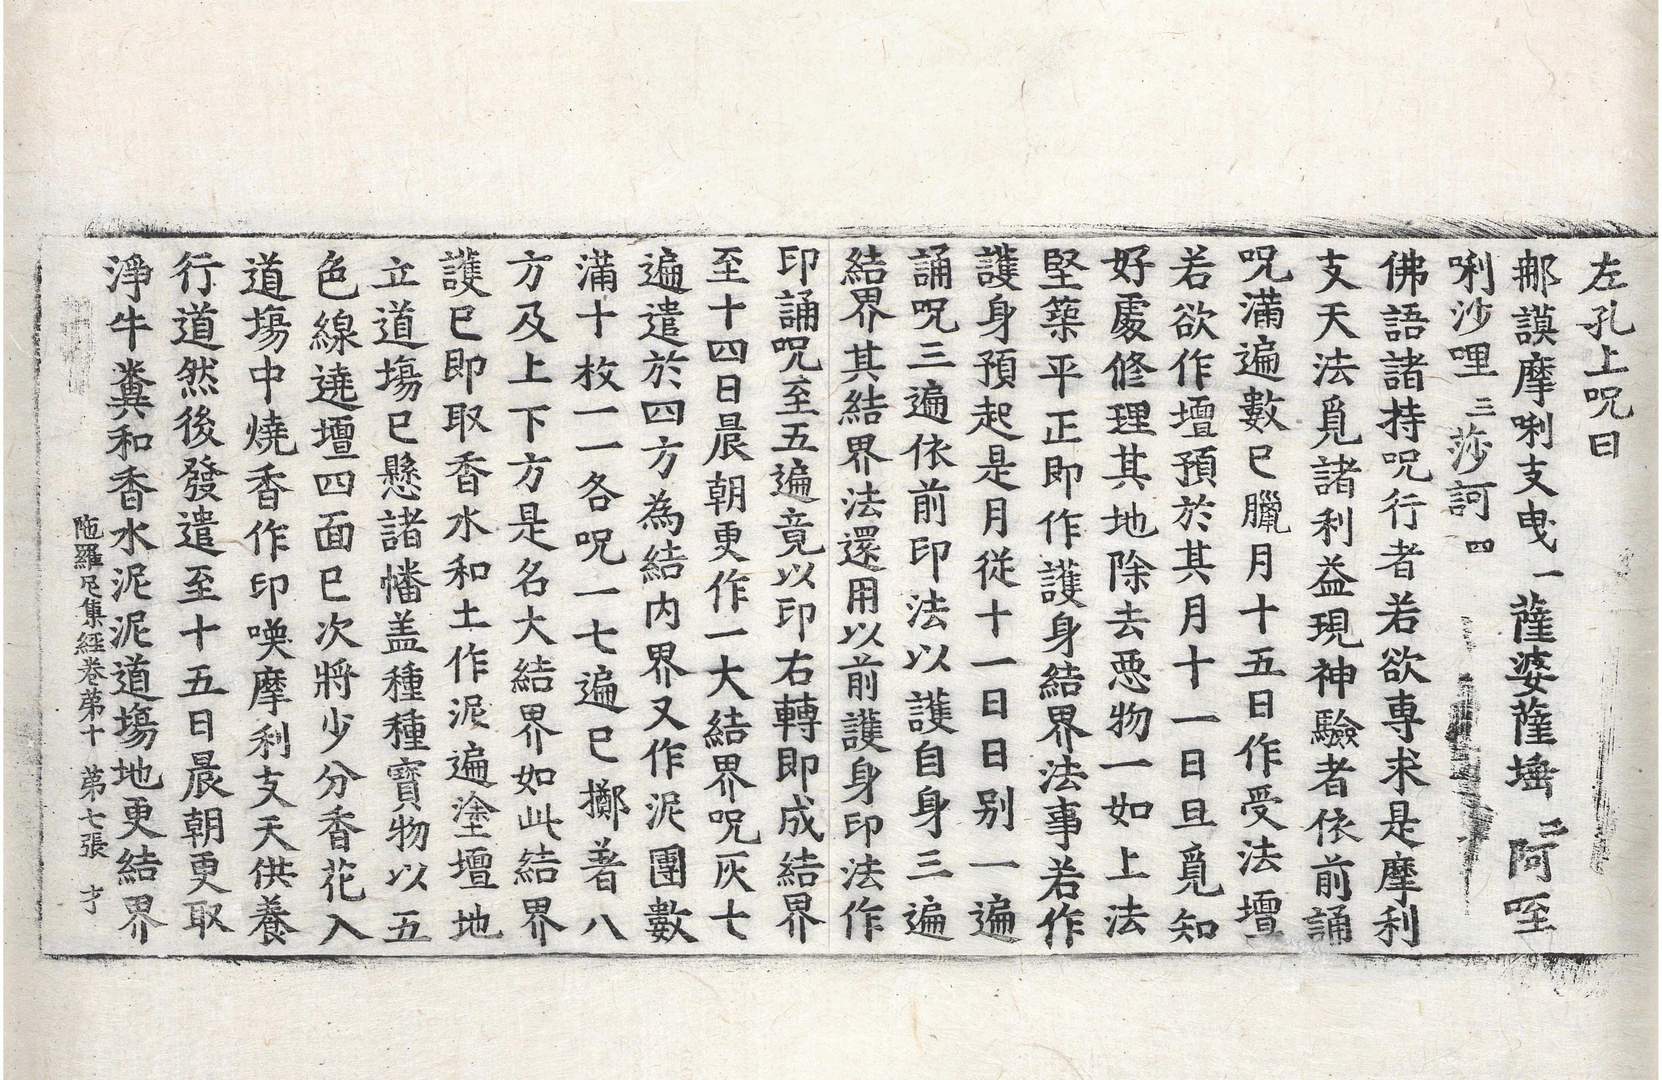 左孔上呪曰
那謨摩唎支曳一薩婆薩埵二阿㗌
唎沙哩三莎訶四
佛語諸持呪行者若欲專求是摩利
支天法覓諸利益現神驗者依前誦
呪滿遍數已臘月十五日作受法壇
若欲作壇預於其月十一日旦覓知
好處修理其地除去惡物一如上法
堅築平正即作護身結界法事若作
護身預起是月從十一日日別一遍
誦呪三遍依前印法以護自身三遍
結界其結界法還用以前護身印法作
印誦呪至五遍竟以印右轉即成結界
至十四日晨朝更作一大結界呪灰七
遍遣於四方為結內界又作泥團數
滿十枚一一各呪一七遍已擲著八
方及上下方是名大結界如此結界
護已即取香水和土作泥遍塗壇地
立道場已懸諸幡盖種種寶物以五
色線遶壇四面已次將少分香花入
道場中燒香作印喚摩利支天供養
行道然後發遣至十五日晨朝更取
淨牛糞和香水泥泥道場地更結界
陁羅尼集經卷苐十 苐七張 才